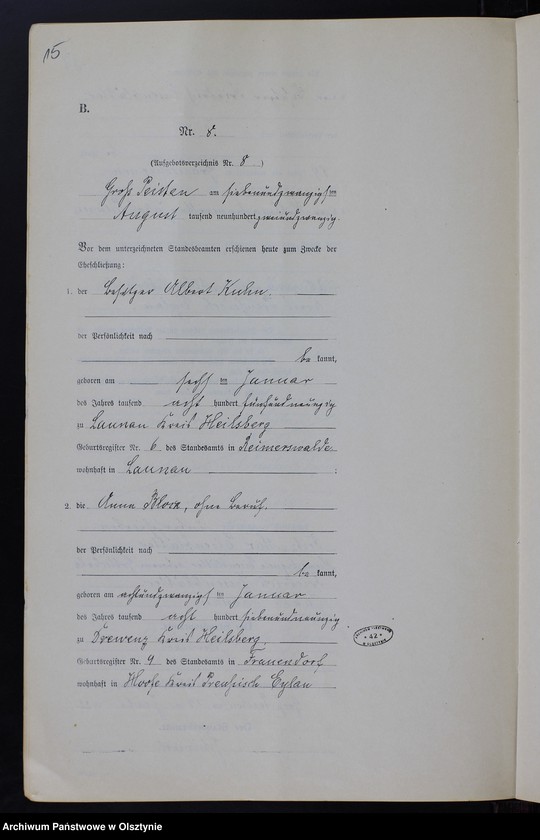 15
B.
Nr. 8.
(Aufgebotsverzeichnis Nr. 8 )
Groß Peisten am siebenundzwanzigsten
August tausend neunhundert zweiundzwanzig.
Vor dem unterzeichneten Standesbeamten erschienen heute zum Zwecke der
Eheschließung:
1. der Besitzer Albert Kuhn.
der Persönlichkeit nach
be kannt,
geboren am sechsten Januar
des Jahres tausend acht hundert fünfundneunzig
zu Launau Kreis Heilsberg
Geburtsregister Nr. 6 des Standesamts in Reimerswalde
wohnhaft in Launau ;
2. die Anna Block, ohne Beruf.
der Persönlichkeit nach
be kannt,
geboren am achtundzwanzigsten Januar
des Jahres tausend acht hundert siebenundneunzig
zu Drewenz Kreis Heilsberg
Geburtsregister Nr. 9 des Standesamts in Frauendorf
wohnhaft in Hoofe Kreis Preußisch Eylau
* 42 *
Archiwum Państwowe w Olsztynie